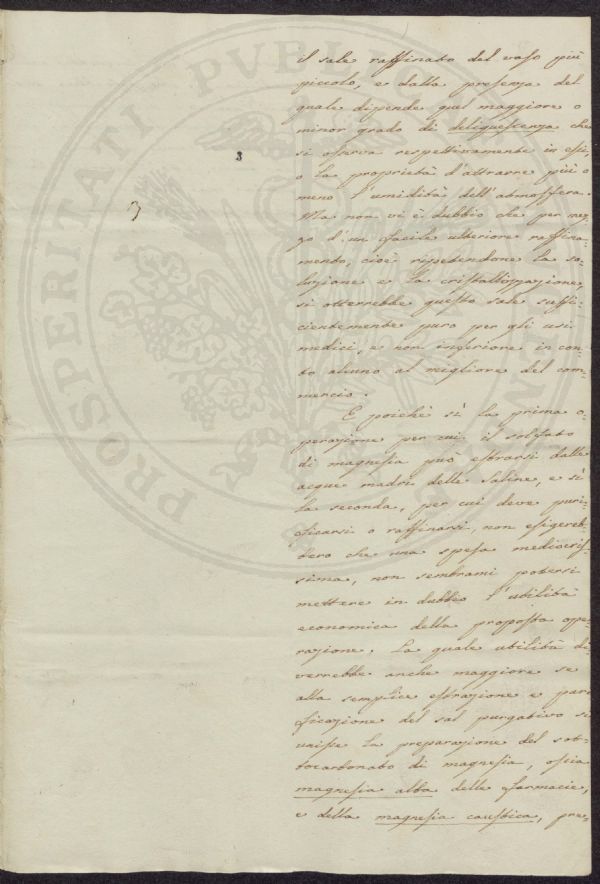 il sale raffinato del vaso più
piccolo, e dalla presenza del
quale dipende quel maggiore o
minor grado di deliquescenza che
si osserva respettivamente in essi,
o la proprietà d'attrarre più o
meno l'umidità dell'atmosfera.
Ma non vi è dubbio che per mez
zo d'un facile ulteriore raffina-
mento, cioè ripetendone la so-
luzione e la cristallizzazione,
si otterrebbe questo sale suffi-
cientemente puro per gli usi
medici, e non inferiore in con-
to alcuno al migliore del com-
mercio.
E poichè sì la prima o-
perazione per cui il solfato
di magnesia può estrarsi dalle
acque madri delle Saline, e sì
la seconda, per cui deve puri-
ficarsi o raffinarsi, non esigereb-
bero che una spesa mediocris-
sima, non sembrami potersi
mettere in dubbio l'utilità
economica della proposta ope-
razione. La quale utilità di-
verrebbe anche maggiore se
alla semplice estrazione e puri
ficazione del sal purgativo si
unisse la preparazione del sot-
tocarbonato di magnesia, ossia
magnesia alba delle farmacie,
e della magnesia caustica, pre-
3
3
PROSPERITATI PVBLICAE